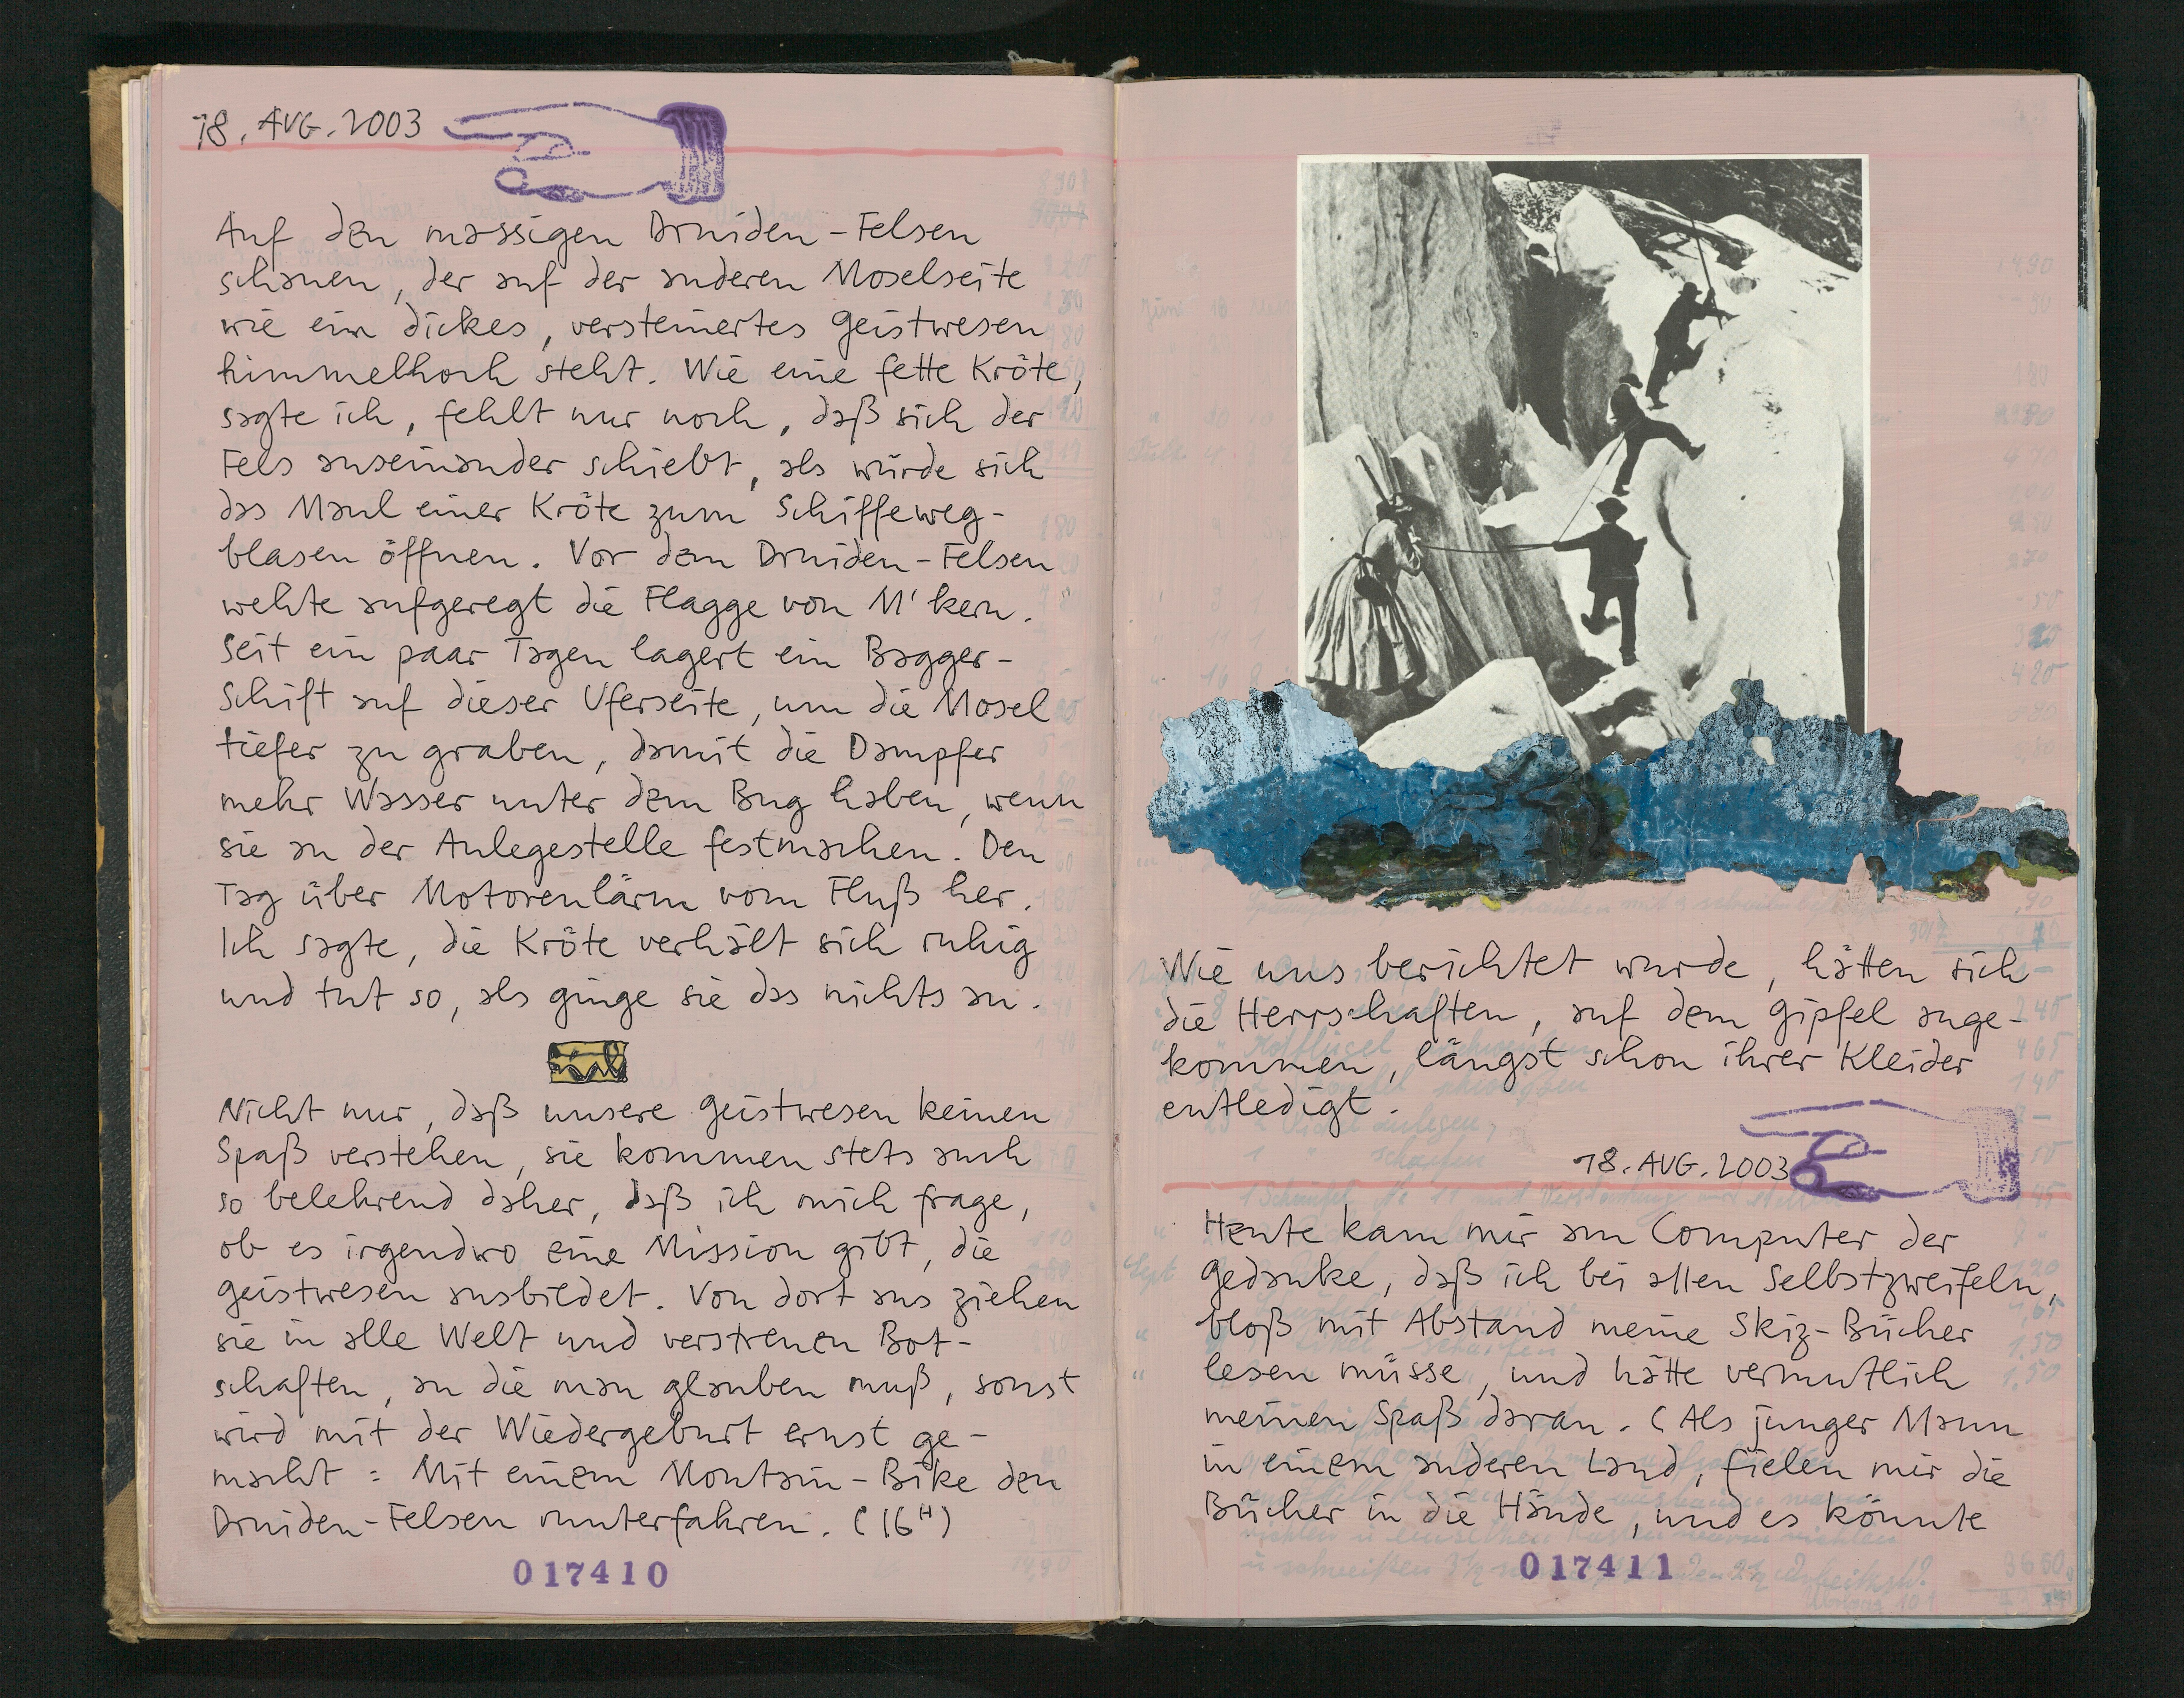 18. AUG. 2003
Auf den massigen Druiden-Felsen
schauen, der auf der anderen Moselseite
wie ein dickes, versteinertes Geistwesen
himmelhoch steht. Wie eine fette Kröte,
sagte ich, fehlt nur noch, daß sich der
Fels auseinander schiebt, als würde sich
das Maul einer Kröte zum Schiffeweg-
blasen öffnen. Vor dem Druiden-Felsen
wehte aufgeregt die Flagge von M'kern.
Seit ein paar Tagen lagert ein Bagger-
Schiff auf dieser Uferseite, um die Mosel
tiefer zu graben, damit die Dampfer
mehr Wasser unter dem Bug haben, wenn
sie an der Anlegestelle festmachen. Den
Tag über Motorenlärm vom Fluß her.
Ich sagte, die Kröte verhält sich ruhig
und tut so, als ginge sie das nichts an.
Nicht nur, daß unsere Geistwesen keinen
Spaß verstehen, sie kommen stets auch
so belehrend daher, daß ich mich frage,
ob es irgendwo eine Mission gibt, die
Geistwesen ausbildet. Von dort aus ziehen
sie in alle Welt und verstreuen Bot-
schaften, an die man glauben muß, sonst
wird mit der Wiedergeburt ernst ge-
macht: Mit einem Montain-Bike den
Druiden-Felsen runterfahren. (16H)
017410
Wie uns berichtet wurde, hätten sich
die Herrschaften, auf dem Gipfel ange-
kommen, längst schon ihrer Kleider
entledigt.
18. AUG. 2003
Heute kam mir am Computer der
Gedanke, daß ich bei allen Selbstzweifeln,
bloß mit Abstand meine Skiz-Bücher
lesen müsse, und hätte vermutlich
meinen Spaß daran. (Als junger Mann
in einem anderen Land, fielen mir die
Bücher in die Hände, und es könnte
017411